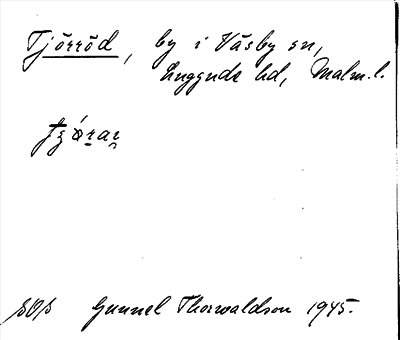 Tjörröd, by i Väsby sn,
Luggude hd, Malm. l.
Gunnel Thorwaldson 1945.